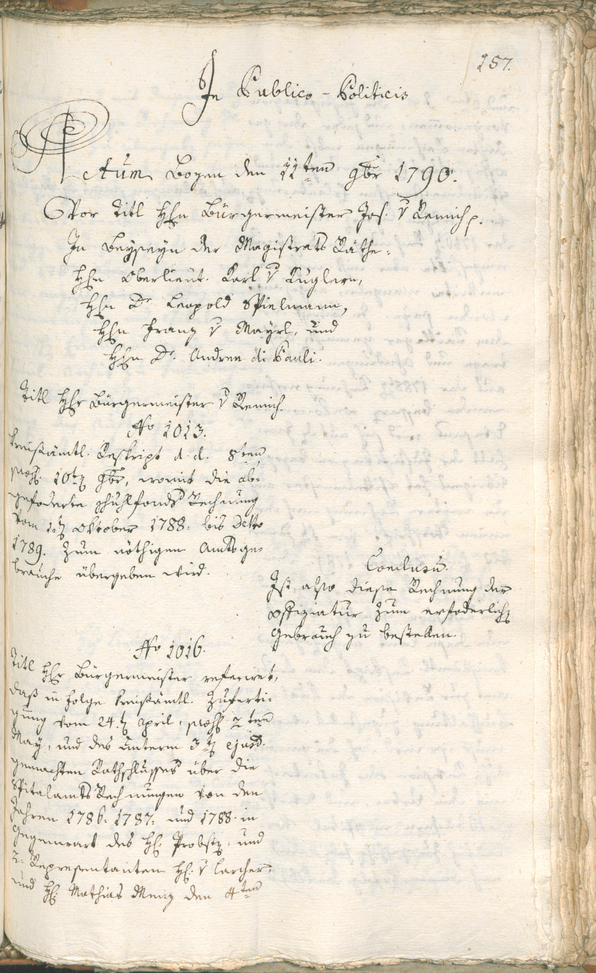 157.
In Publico-Politicis
Actum Bozen den 11ten 9br 1790.
Vor Titl Hhn Bürgermeister Jos. v Remich p.
In Beyseyn der Magistrats Räthe.
Hhn Oberlieut. Karl v Kuglern,
Hhn Dr. Leopold Spielmann,
Hhn Franz v Mayrl, und
Hhn Dr. Andree di Pauli.
Titl Hhr Bürgermeister v Remich.
No 1013.
Kreisämtl. Reskript d. d. 8ten
10ten 9br, womit die ab-
geforderte Schulfonds Rechnung
vom 1ten Oktober 1788. bis detto
1789. zum nöthigen Amtsge-
brauche übergeben wird.
Conclusum.
Ist also diese Rechnung der
Offiziatur zum erforderlich
Gebrauch zu bestellen.
No 1016.
Titl Hhr Bürgermeister referirt,
daß in Folge kreisämtl. Zuferti-
gung vom 24. April, 2ten
May, und des unterm 3ten ejusd.
gemachten Rathschlusses über die
Spitalamts Rechnungen von den
Jahren 1786. 1787. und 1788. in
Gegenwart des H. Probsts, und
2. Representanten H. v Larcher
und H. Mathias Menz den 4ten